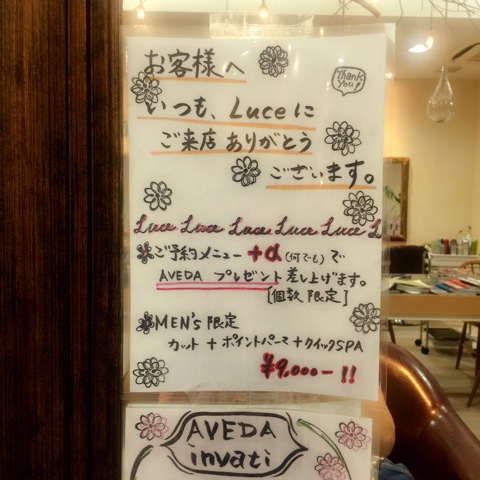 お客様へ
Thank
You!
いつも、Luceに
ご来店ありがとう
ございます。
Luce Luce Luce Luce Luce L
ご予約メニュー +α(何でも)で
AVEDA プレゼント差し上げます。
[個数限定]
MEN'S限定
カット+ポイントパーマ+クイックSPA
¥9,000-!!
AVEDA
invati